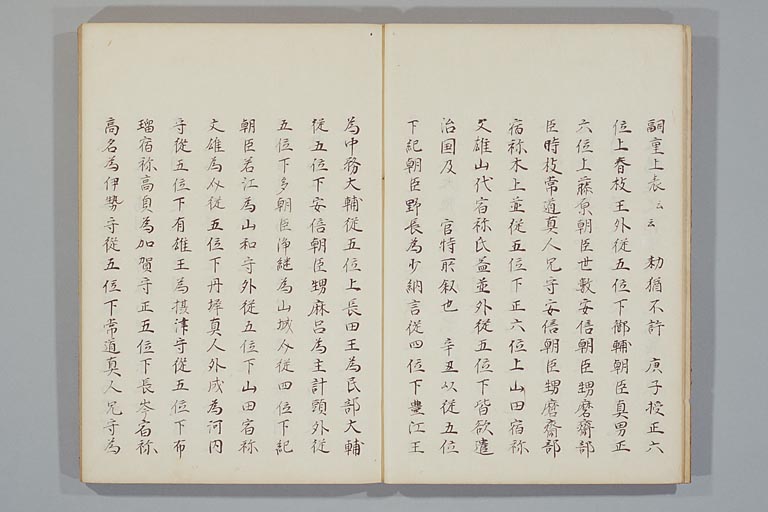 嗣童上表云云　勅猶不許　庚子授正六
位上春枝王外従五位下御輔朝臣真男正
六位上藤原朝臣世数安倍朝臣甥麿齋部
臣時枝常道真人兄守安倍朝臣甥磨齋部
宿祢木上並従五位下正六位上山田宿祢
文雄山代宿祢氏益並外従五位下皆欲遣
治国及　官特所叙也　辛丑以従五位
下紀朝臣野長為少納言従四位下豊江王
為中務大輔従五位上長田王為民部大輔
従五位下安倍朝臣甥麻呂為主計頭外従
五位下多朝臣浄継為山城介従四位下紀
朝臣若江為山和守外従五位下山田宿祢
文雄為介従五位下丹墀真人外成為河内
守従五位下有雄王為摂津守従五位下布
瑠宿祢高負為加賀守正五位下長岑宿祢
高名為伊勢守従五位下常道真人兄守為